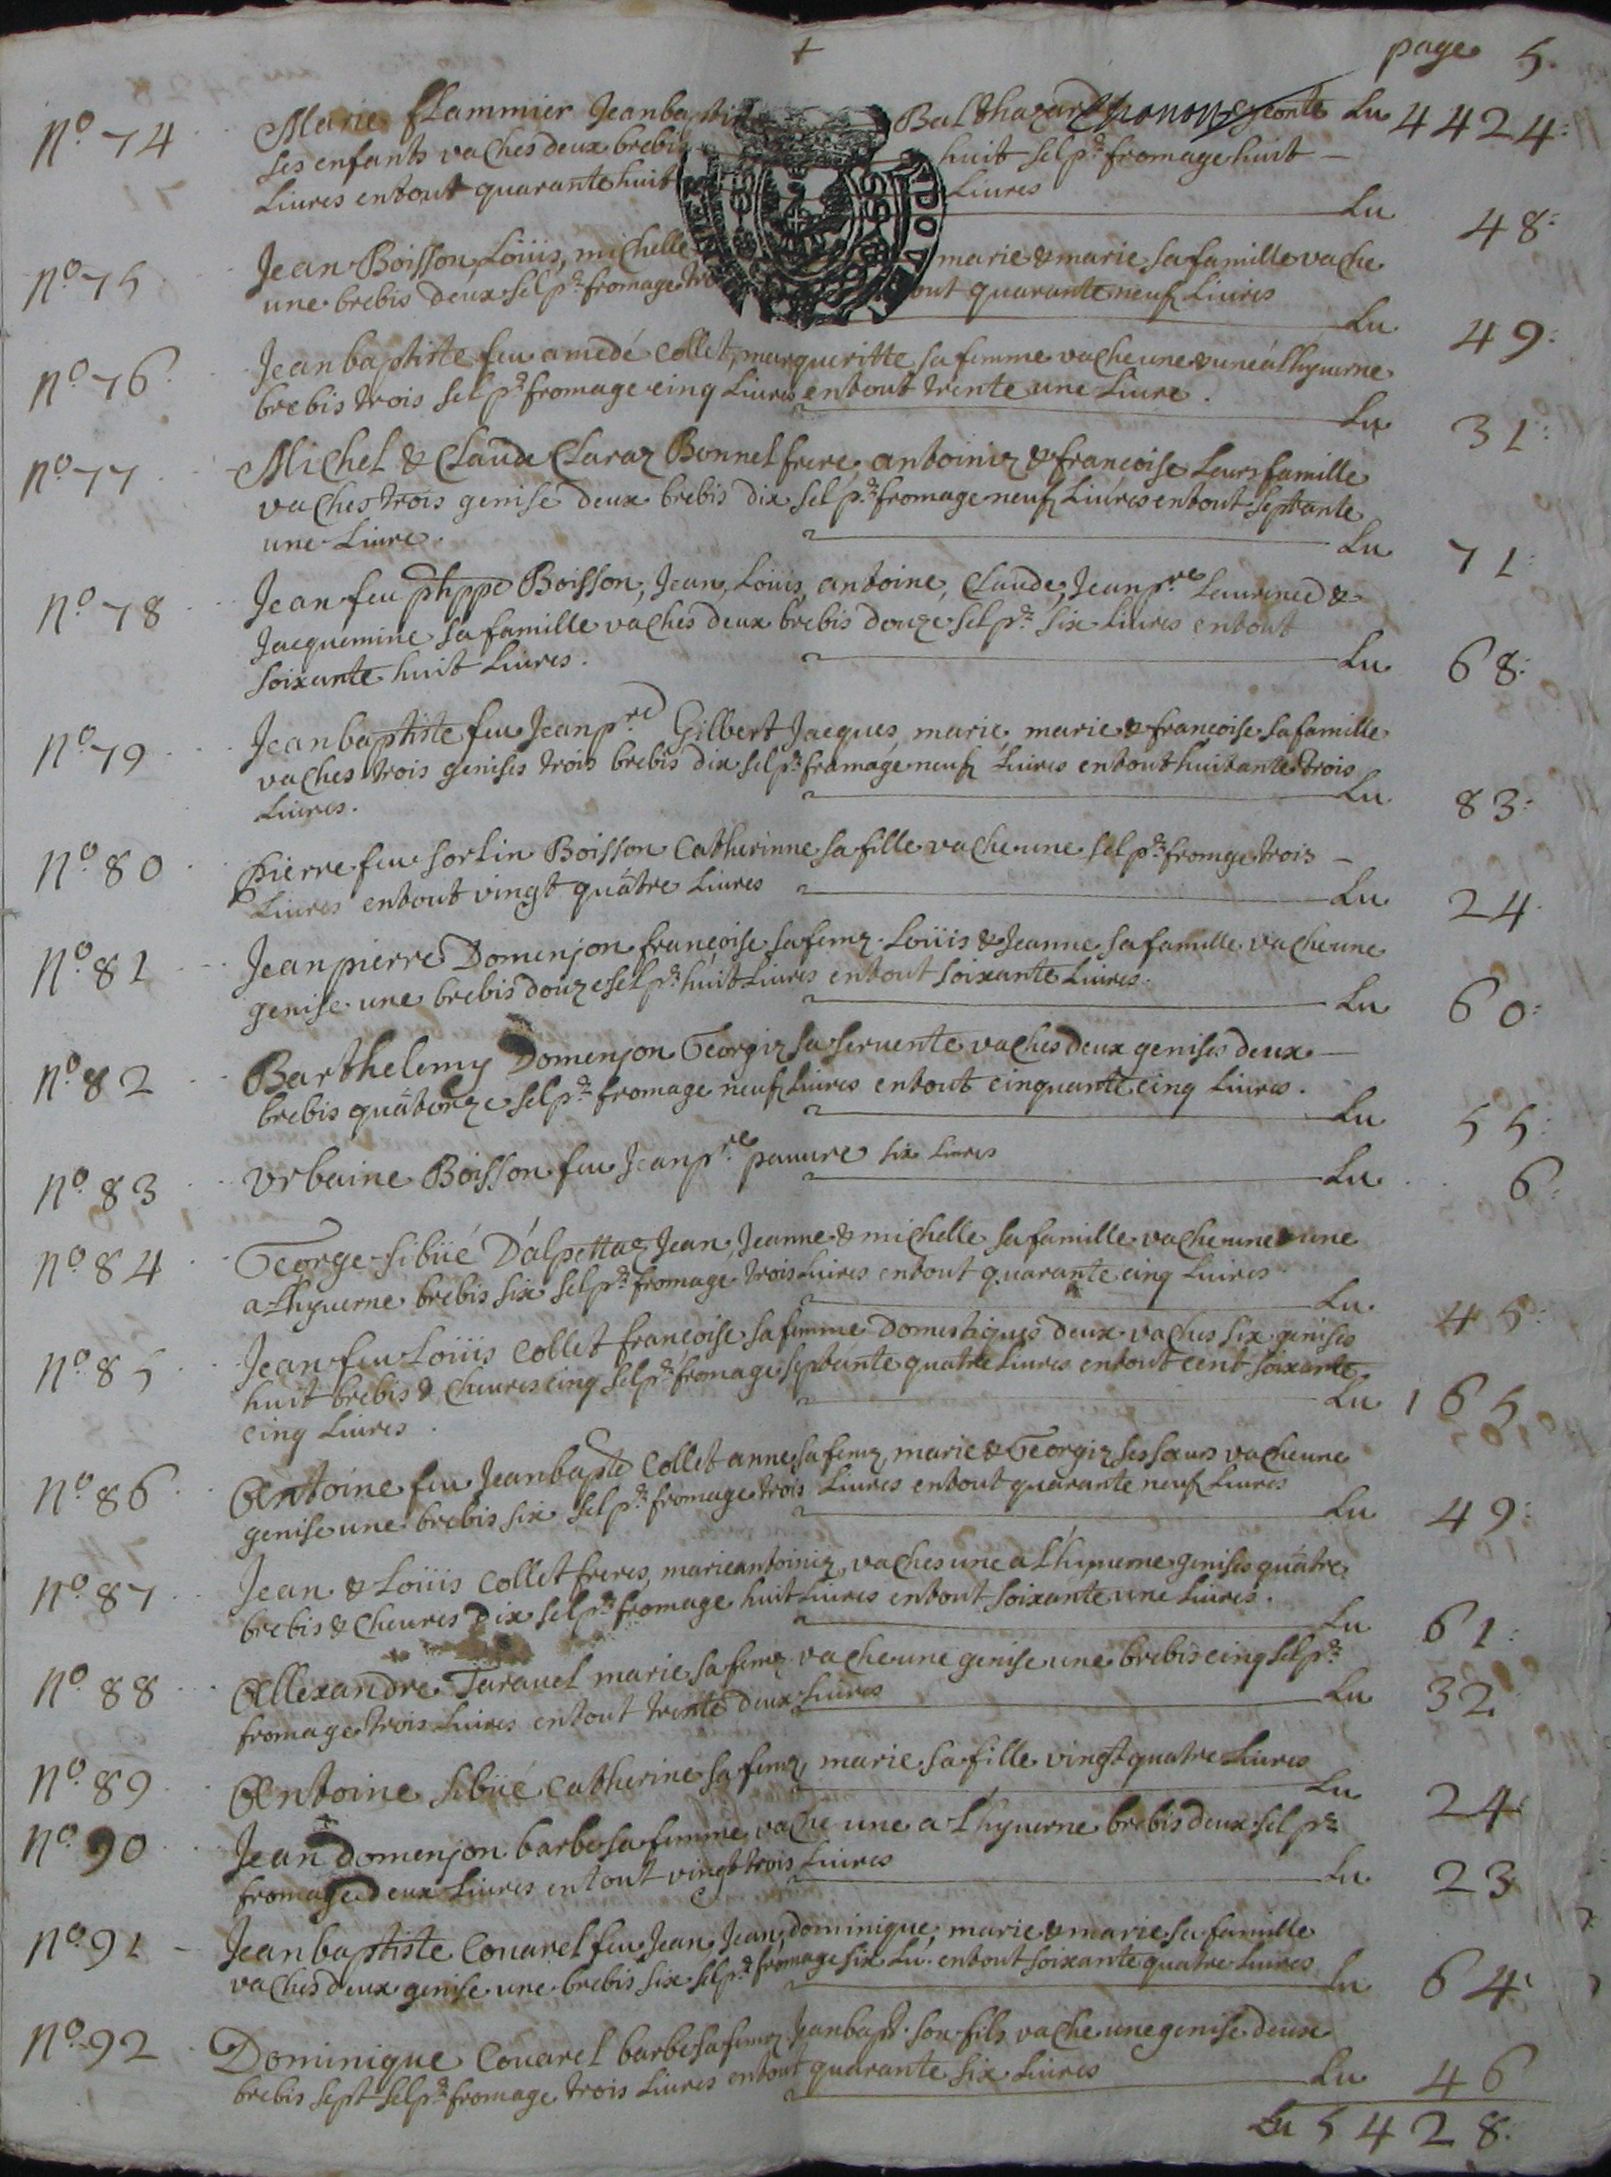 page 5.
n.º 74 Marie flammier Jeanbaptis Balthazar Lu 4424:
ses enfants vaches deux brebis huit sel pr fromage huit
Liures entout quarante huit Liures Lu 48:
n.º 75 Jean Boisson, Loüis, michelle marie & marie sa famille vache
une brebis deux sel pr fromage tro out quarante neuf Liures Lu 49:
n.º 76 Jeanbaptiste feu amedé collet, margueritte sa femme vache une & une a Lhyuerne
brebis trois sel pr fromage cinq Liures entout trente une Liure. Lu 31:
n.º 77 Michel & Claude Claraz Bonnel frere, antoiniz & francoise Leurs famille
vaches trois genise deux brebis dix sel pr fromage neuf Liures entout septante
une Liure. Lu 71:
n.º 78 Jean feu phppe Boisson, Jean, Loüis, antoine, Claude, Jean pre Laurence &
Jacquemine sa famille vaches deux brebis douze sel pr six Liures entout
soixante huit Liures. Lu 68:
n.º 79 Jeanbaptiste feu Jean pre Gilbert Jacques, marie, marie & francoise sa famille
vaches trois genises trois brebis dix sel pr framage neuf Liures entout huitante trois
Liures. Lu 83:
n.º 80 pierre feu sorlin Boisson Catherinne sa fille vache une sel pr fromge trois
Liures entout vingt quätre Liures Lu 24
n.º 81 Jeanpierre Domenjon francoise sa femz Loüis & Jeanne sa famille vache une
genise une brebis douze sel pr huit Liures entout soixante Liures. Lu 60:
n.º 82 Barthelemy Domenjon Georgiz sa seruente vaches deux genises deux
brebis quätorze sel pr fromage neuf Liures entout cinquante cinq Liures. Lu 55:
n.º 83 Vrbaine Boisson feu Jean pre pauure six Liures Lu 6:
n.º 84 George sibüé D'alpettaz Jean, Jeanne & michelle sa famille vache une & une
a Lhyuerne brebis six sel pr fromage trois Liures entout quarante cinq Liures Lu 45:
n.º 85 Jean feu Loüis Collet francoise sa femme Domestiques deux vaches six genises
huit brebis & cheures cinq sel pr fromage septante quatre Liures entout cent soixante
cinq Liures. Lu 165
n.º 86 Antoine feu Jeanbapte Collet anne sa femz, marie & Georgiz ses sœurs vache une
genise une brebis six sel pr fromage trois Liures entout quarante neuf Liures Lu 49:
n.º 87 Jean & Loüis Collet freres, marieantoiniz, vaches une a Lhyuerne genises quätre
brebis & cheures Dix sel pr fromage huit Liures entout soixante une Liures. Lu 61:
n.º 88 Allexandre Tarauel marie sa femz vache une genise une brebis cinq sel pr
fromage trois Liures entout trente deux Liures Lu 32:
n.º 89 Antoine sibüé Catherine sa femz, marie sa fille vingt quatre Liures Lu 24:
n.º 90 Jean domenjon barbe sa femme vache une a Lhyuerne brebis deux sel pr
fromage deux Liures entout vingt trois Liures Lu 23
n.º 91 Jeanbaptiste Couarel feu Jean, Jean, dominique, marie & marie sa famille
vaches deux genise une brebis six sel pr fromage six Lu. entout soixante quatre Liures Lu 64:
n.º 92 Dominique Couarel barbe sa femz Jeanbapt. son fils vache une genise deux
brebis sept sel pr fromage trois Liures entout quarante six Liures Lu 46
Lu 5428: